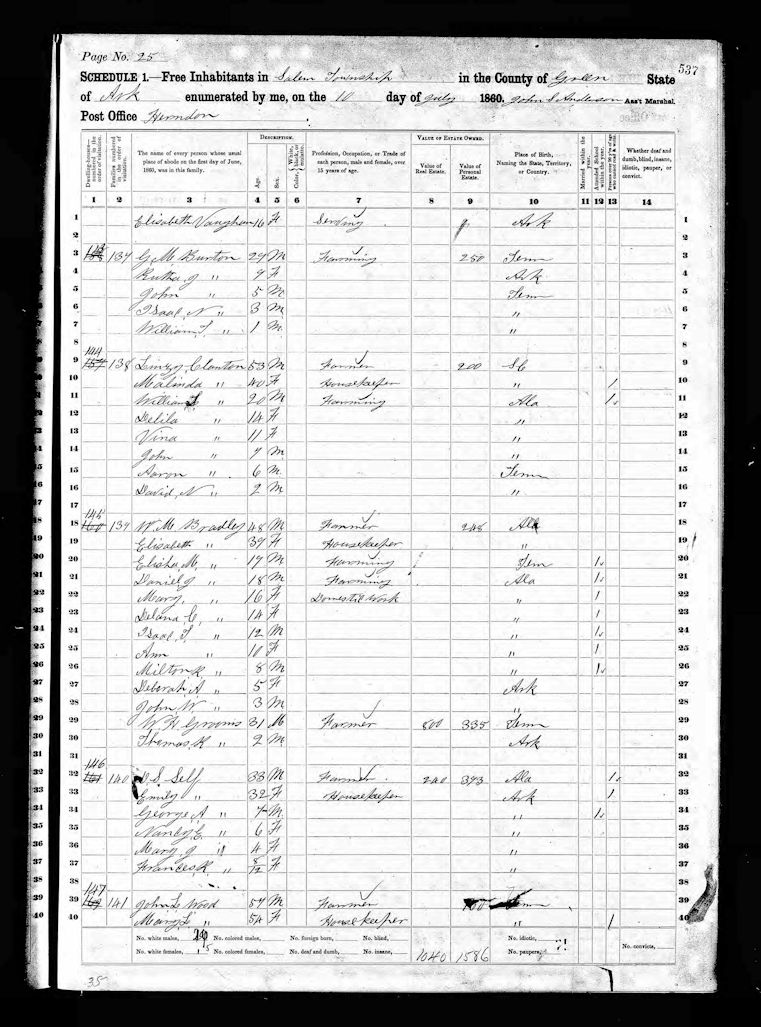 Page No. 25
537
SCHEDULE 1.—Free Inhabitants in Salem Township in the County of Green State
of Ark enumerated by me, on the 10 day of July 1860. John S Anderson Ass't Marshal.
Post Office Herndon
DESCRIPTION. VALUE OF ESTATE OWNED.
Dwelling-houses—numbered in the order of visitation. Families numbered in the order of visitation. The name of every person whose usual place of abode on the first day of June, 1860, was in this family. Age. Sex. Color, White, black, or mulatto. Profession, Occupation, or Trade of each person, male and female, over 15 years of age. Value of Real Estate. Value of Personal Estate. Place of Birth, Naming the State, Territory, or Country. Married within the year. Attended School within the year. Whether deaf and dumb, blind, insane, idiotic, pauper, or convict.
1 2 3 4 5 6 7 8 9 10 11 12 13 14
1 Elisabeth Vaughan 16 F Serving Ark 1
2 2
3 137 G. M. Burton 29 M Farming 250 Tenn 3
4 " 4 F Ark 4
5 John " 5 M Tenn 5
6 Isaac N " 3 M " 6
7 William T. " 1 M " 7
8 8
144
9 138 Clanton 53 M Farmer 200 SC 9
10 Malinda " 40 F Housekeeper " / 10
11 William " 20 M Farming Ala / 11
12 Delila " 14 F " 12
13 Vina " 11 F " 13
14 John " 7 M " 14
15 Aaron " 6 M Tenn 15
16 David N " 2 M " 16
17 17
145
18 139 W. M. Bradley 48 M Farmer 248 Ala 18
19 Elisabeth " 39 F Housekeeper " 19
20 Elisha M. " 19 M Farming Tenn / 20
21 Daniel J " 18 M Farming Ala / 21
22 Mary " 16 F Domestic Work " / 22
23 C. " 14 F " / 23
24 Isaac T. " 12 M " / 24
25 Ann " 10 F " / 25
26 Milton R " 8 M " / 26
27 Deborah A " 5 F Ark 27
28 John W " 3 M " 28
29 W. H. Grooms 31 M Farmer 800 335 Tenn 29
30 Thomas R " 2 M Ark 30
31 31
146
32 140 S Self 33 M Farmer 240 393 Ala / 32
33 Emily " 32 F Housekeeper Ark / 33
34 George A " 7 M " / 34
35 Nancy E. " 6 F " 35
36 Mary J " 4 F " 36
37 Frances R " 8/12 F " 37
38 38
147
39 141 John L Wood 57 M Farmer 100 Tenn 39
40 Mary " 54 F Housekeeper " / 40
No. white males, No. colored males, No. foreign born, No. blind, No. idiotic,
No. white females, No. colored females, No. deaf and dumb, No. insane, 1040 1586 No. paupers, No. convicts,
35